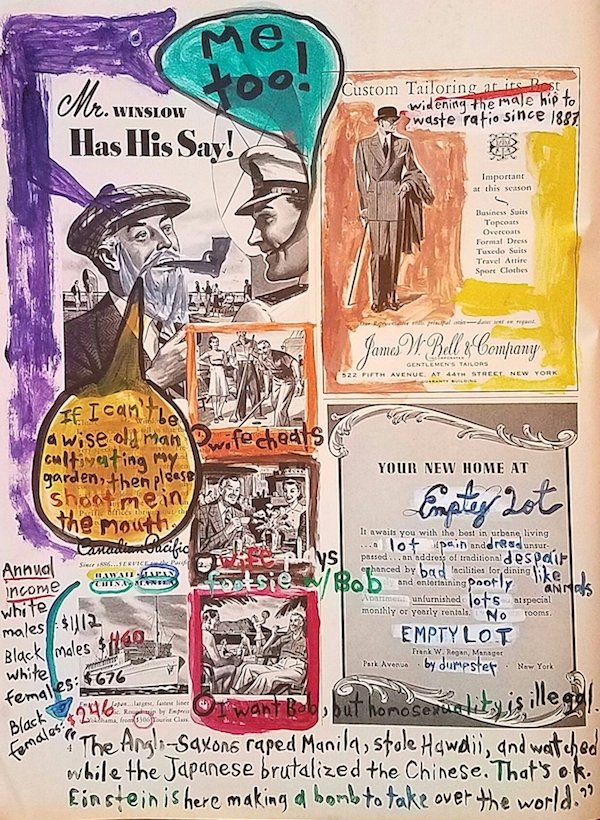 Me
too!
Mr. WINSLOW
Has His Say!
If I can't be
a wise old man
cultivating my
garden, then please
shoot me in
the mouth.
Canadian Pacific
Since 1886...SERVICE
HAWAII
Annual
income
white
males: $1,112
Black males $460
white
females: $676
Black
females: $246
Japan...largest, fastest liner
Yokohama, from $306 Tourist Class.
wife cheats
wife plays
footsie w/ Bob
I want Bob, but homosexuality is illegal.
Custom Tailoring at its Best
widening the male hip to
waste ratio since 1887
Important
at this season
Business Suits
Topcoats
Overcoats
Formal Dress
Tuxedo Suits
Travel Attire
Sport Clothes
Our Representative visits principal cities—dates sent on request.
James W. Bell & Company
INCORPORATED
GENTLEMEN'S TAILORS
522 FIFTH AVENUE, AT 44TH STREET, NEW YORK
GUARANTY BUILDING
YOUR NEW HOME AT
Empty Lot
It awaits you with the best in urbane living
...a lot pain and dread unsur-
passed...an address of traditional despair
enhanced by bad facilities for dining like
and entertaining poorly animals
Apartments, unfurnished lots at special
monthly or yearly rentals. No rooms.
EMPTY LOT
Frank W. Regan, Manager
Park Avenue · by dumpster · New York
"The Anglo-Saxons raped Manila, stole Hawaii, and watched
while the Japanese brutalized the Chinese. That's o.k.
Einstein is here making a bomb to take over the world."